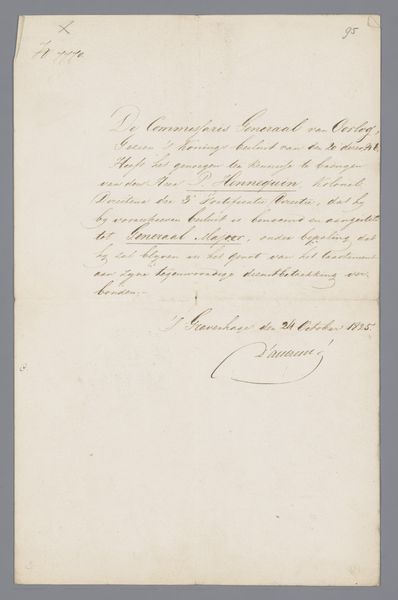 95
De Commissaris Generaal van Oorlog,
Gezien 's Konings besluit van den 20 dezer
Heeft het genoegen ter kennisse te brengen
van den Heer P. Hennequin, Kolonel
Directeur der 3e Fortificatie Directie, dat hy
by voorschreven besluit is benoemd en aangesteld
tot Generaal Majoor, onder bepaling dat
hy zal blyven in het genot van het tractement
aan zyne tegenwoordige dienstbetrekking ver-
bonden.
'S Gravenhage den 24 October 1825.